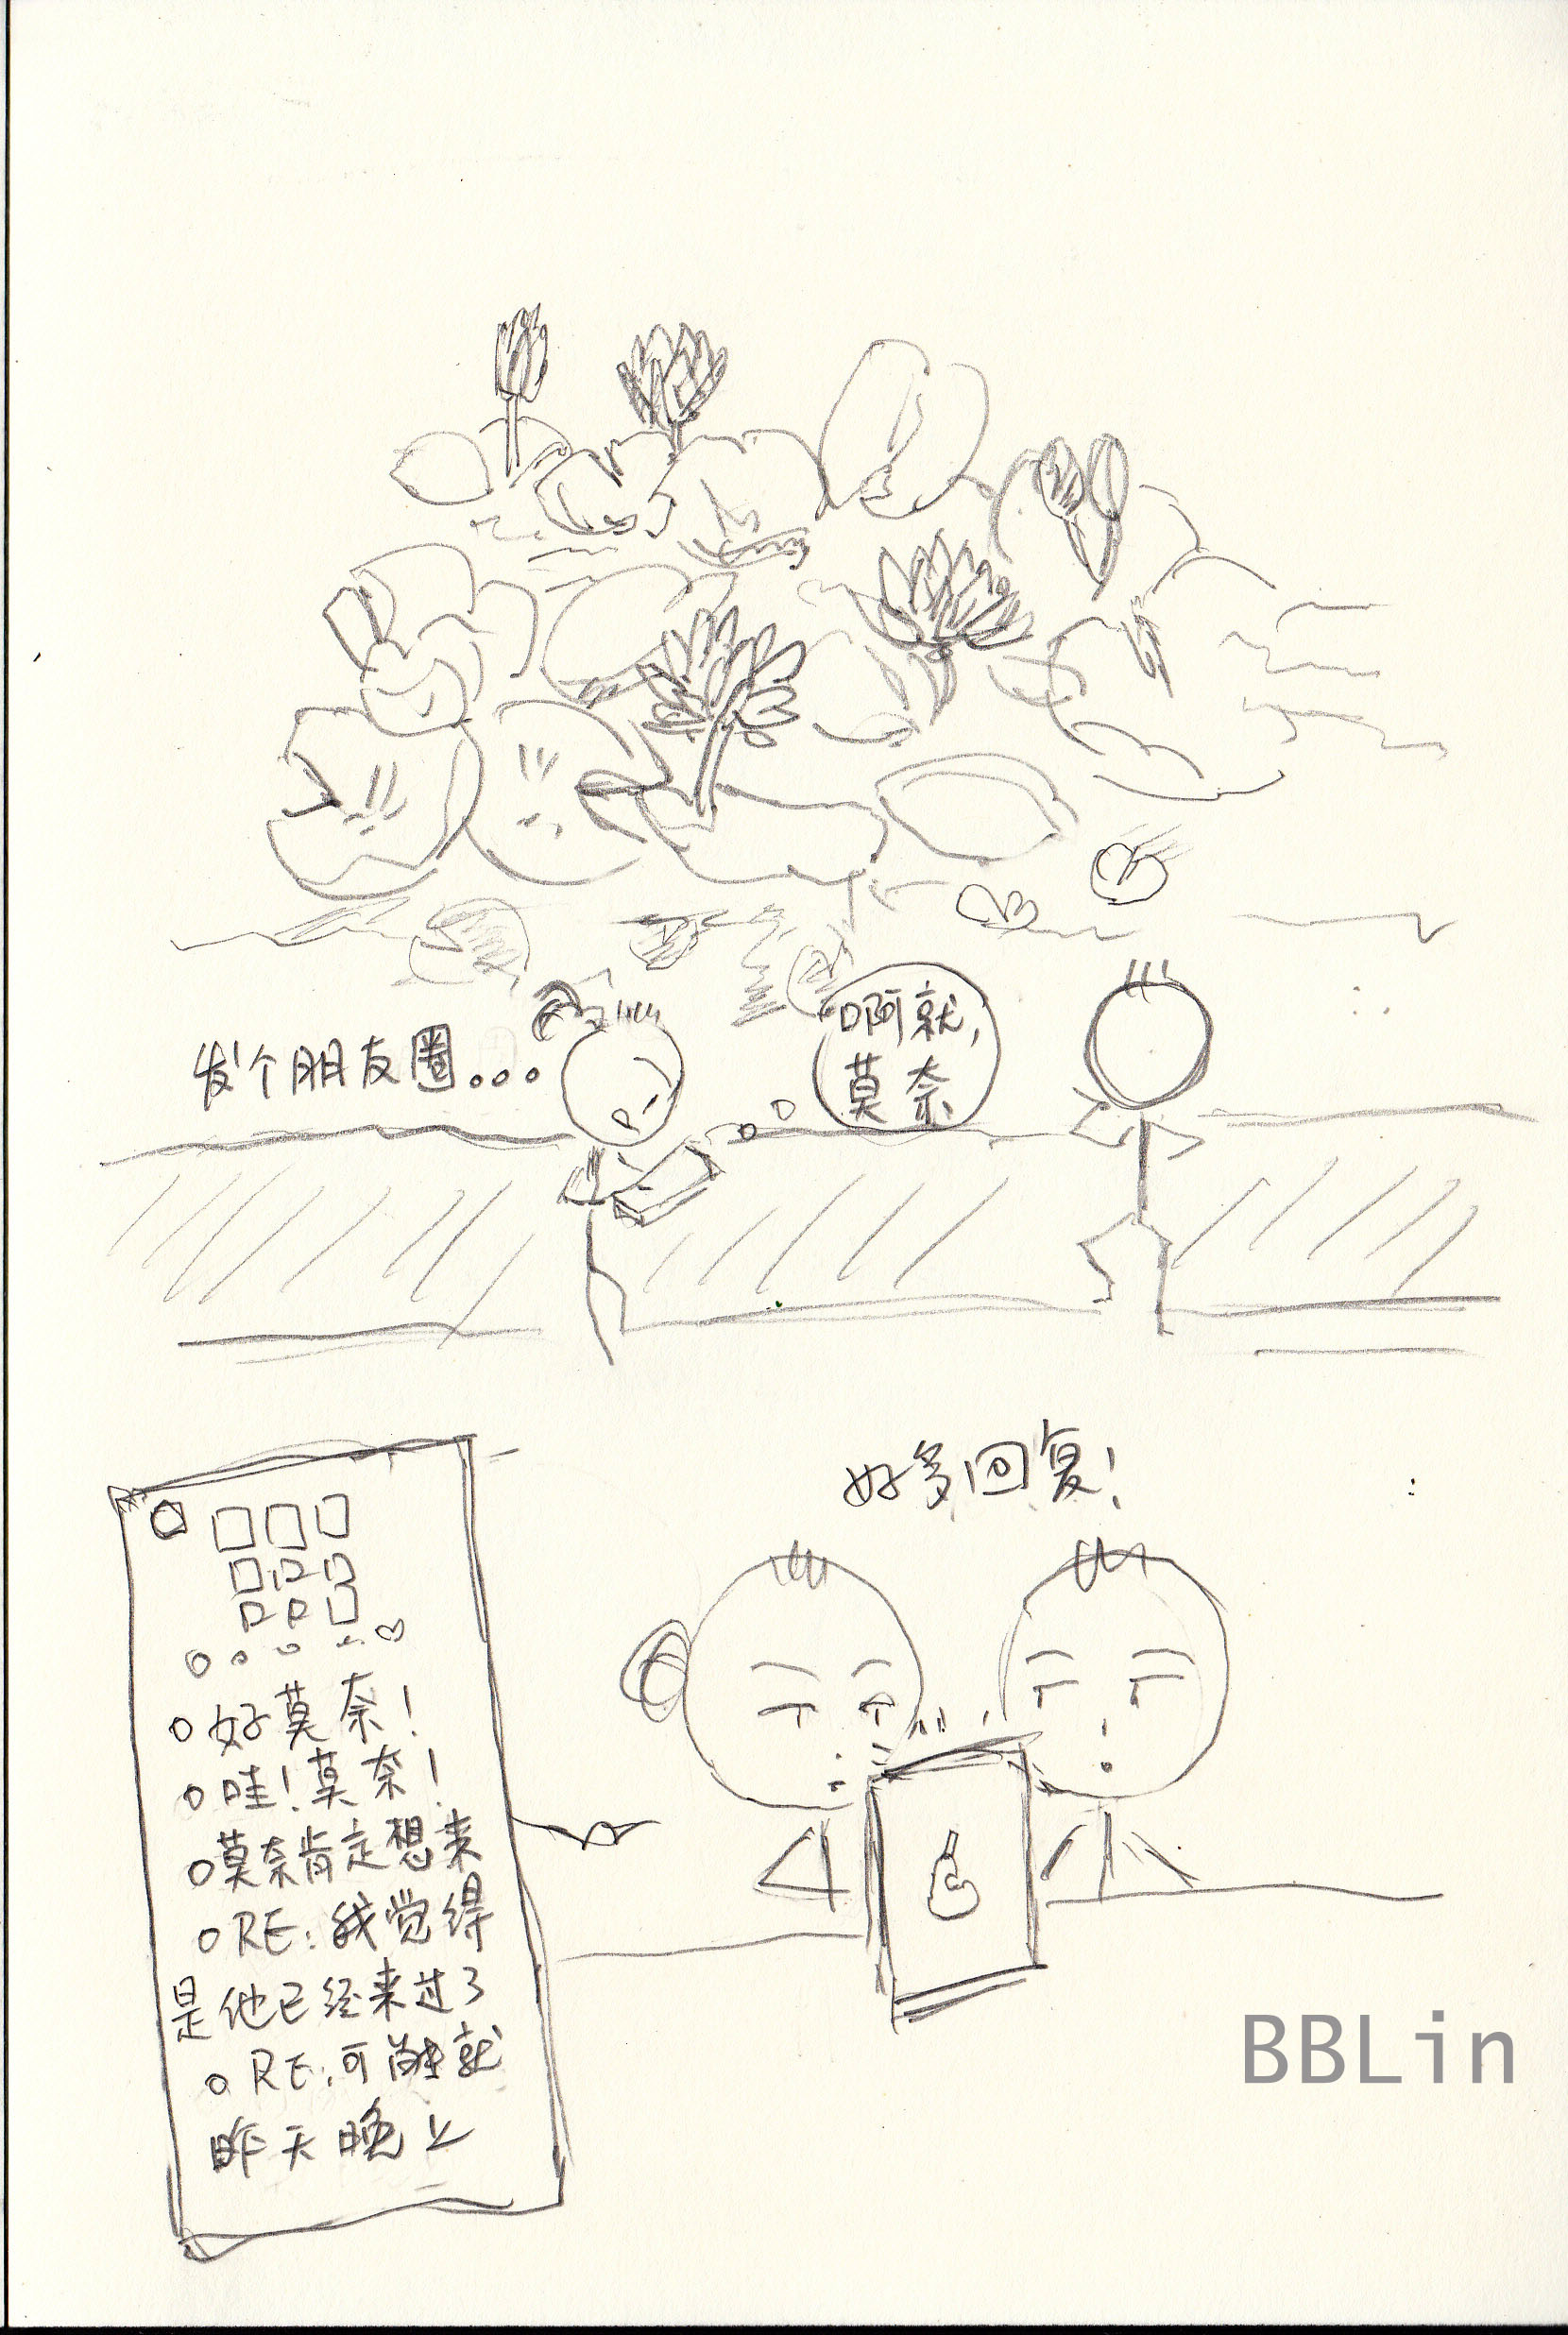 发个朋友圈。。。
啊就,
莫奈
好多回复!
好莫奈!
哇!莫奈!
莫奈肯定想来
RE:我觉得
是他已经来过了
RE:可能就
昨天晚上
BBLin